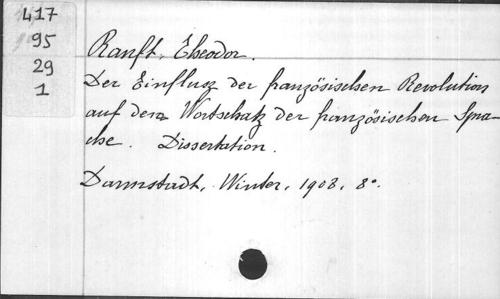 417
95
29
1
Ranft, Theodor.
Der Einfluss der französischen Revolution
auf den Wortschatz der französischen Spra-
che. Dissertation.
Darmstadt, Winter, 1908. 8°.